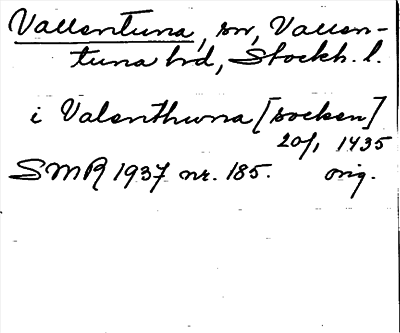 Vallentuna, sn, Vallen-
tuna hd, Stockh. l.
i Valenthwna [socken]
20/1 1435
SMR 1937 nr. 185. orig.